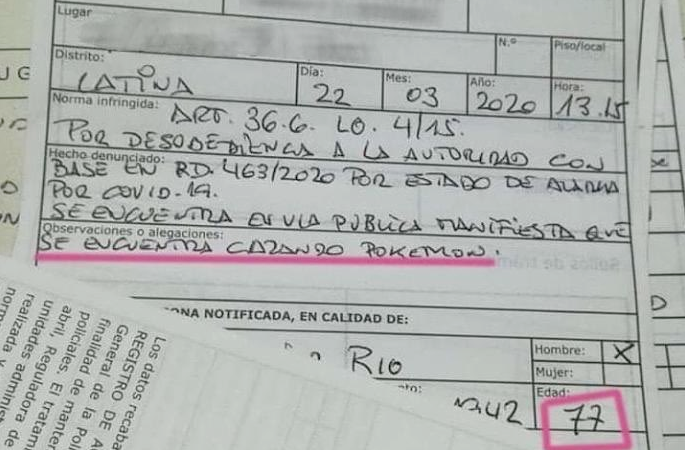 Lugar
N.º
Piso/local
Distrito:
LATINA
Día:
22
Mes:
03
Año:
2020
Hora:
13.15
Norma infringida:
ART. 36.6. LO. 4/15.
POR DESOBEDIENCA A LA AUTORIDAD CON
Hecho denunciado:
BASE EN RD. 463/2020 POR ESTADO DE ALARMA
POR COVID-19.
SE ENCUENTRA EN VIA PUBLICA MANIFIESTA QUE
Observaciones o alegaciones:
SE ENCUENTRA CAZANDO POKEMON.
ONA NOTIFICADA, EN CALIDAD DE:
RIO
Hombre: X
Mujer:
Edad:
77
42
Los datos recaba
REGISTRO DE A
General de la pol
finalidad de mante
policiales. El tratam
abril, Reguladora de
unidades administ
realizada
norma